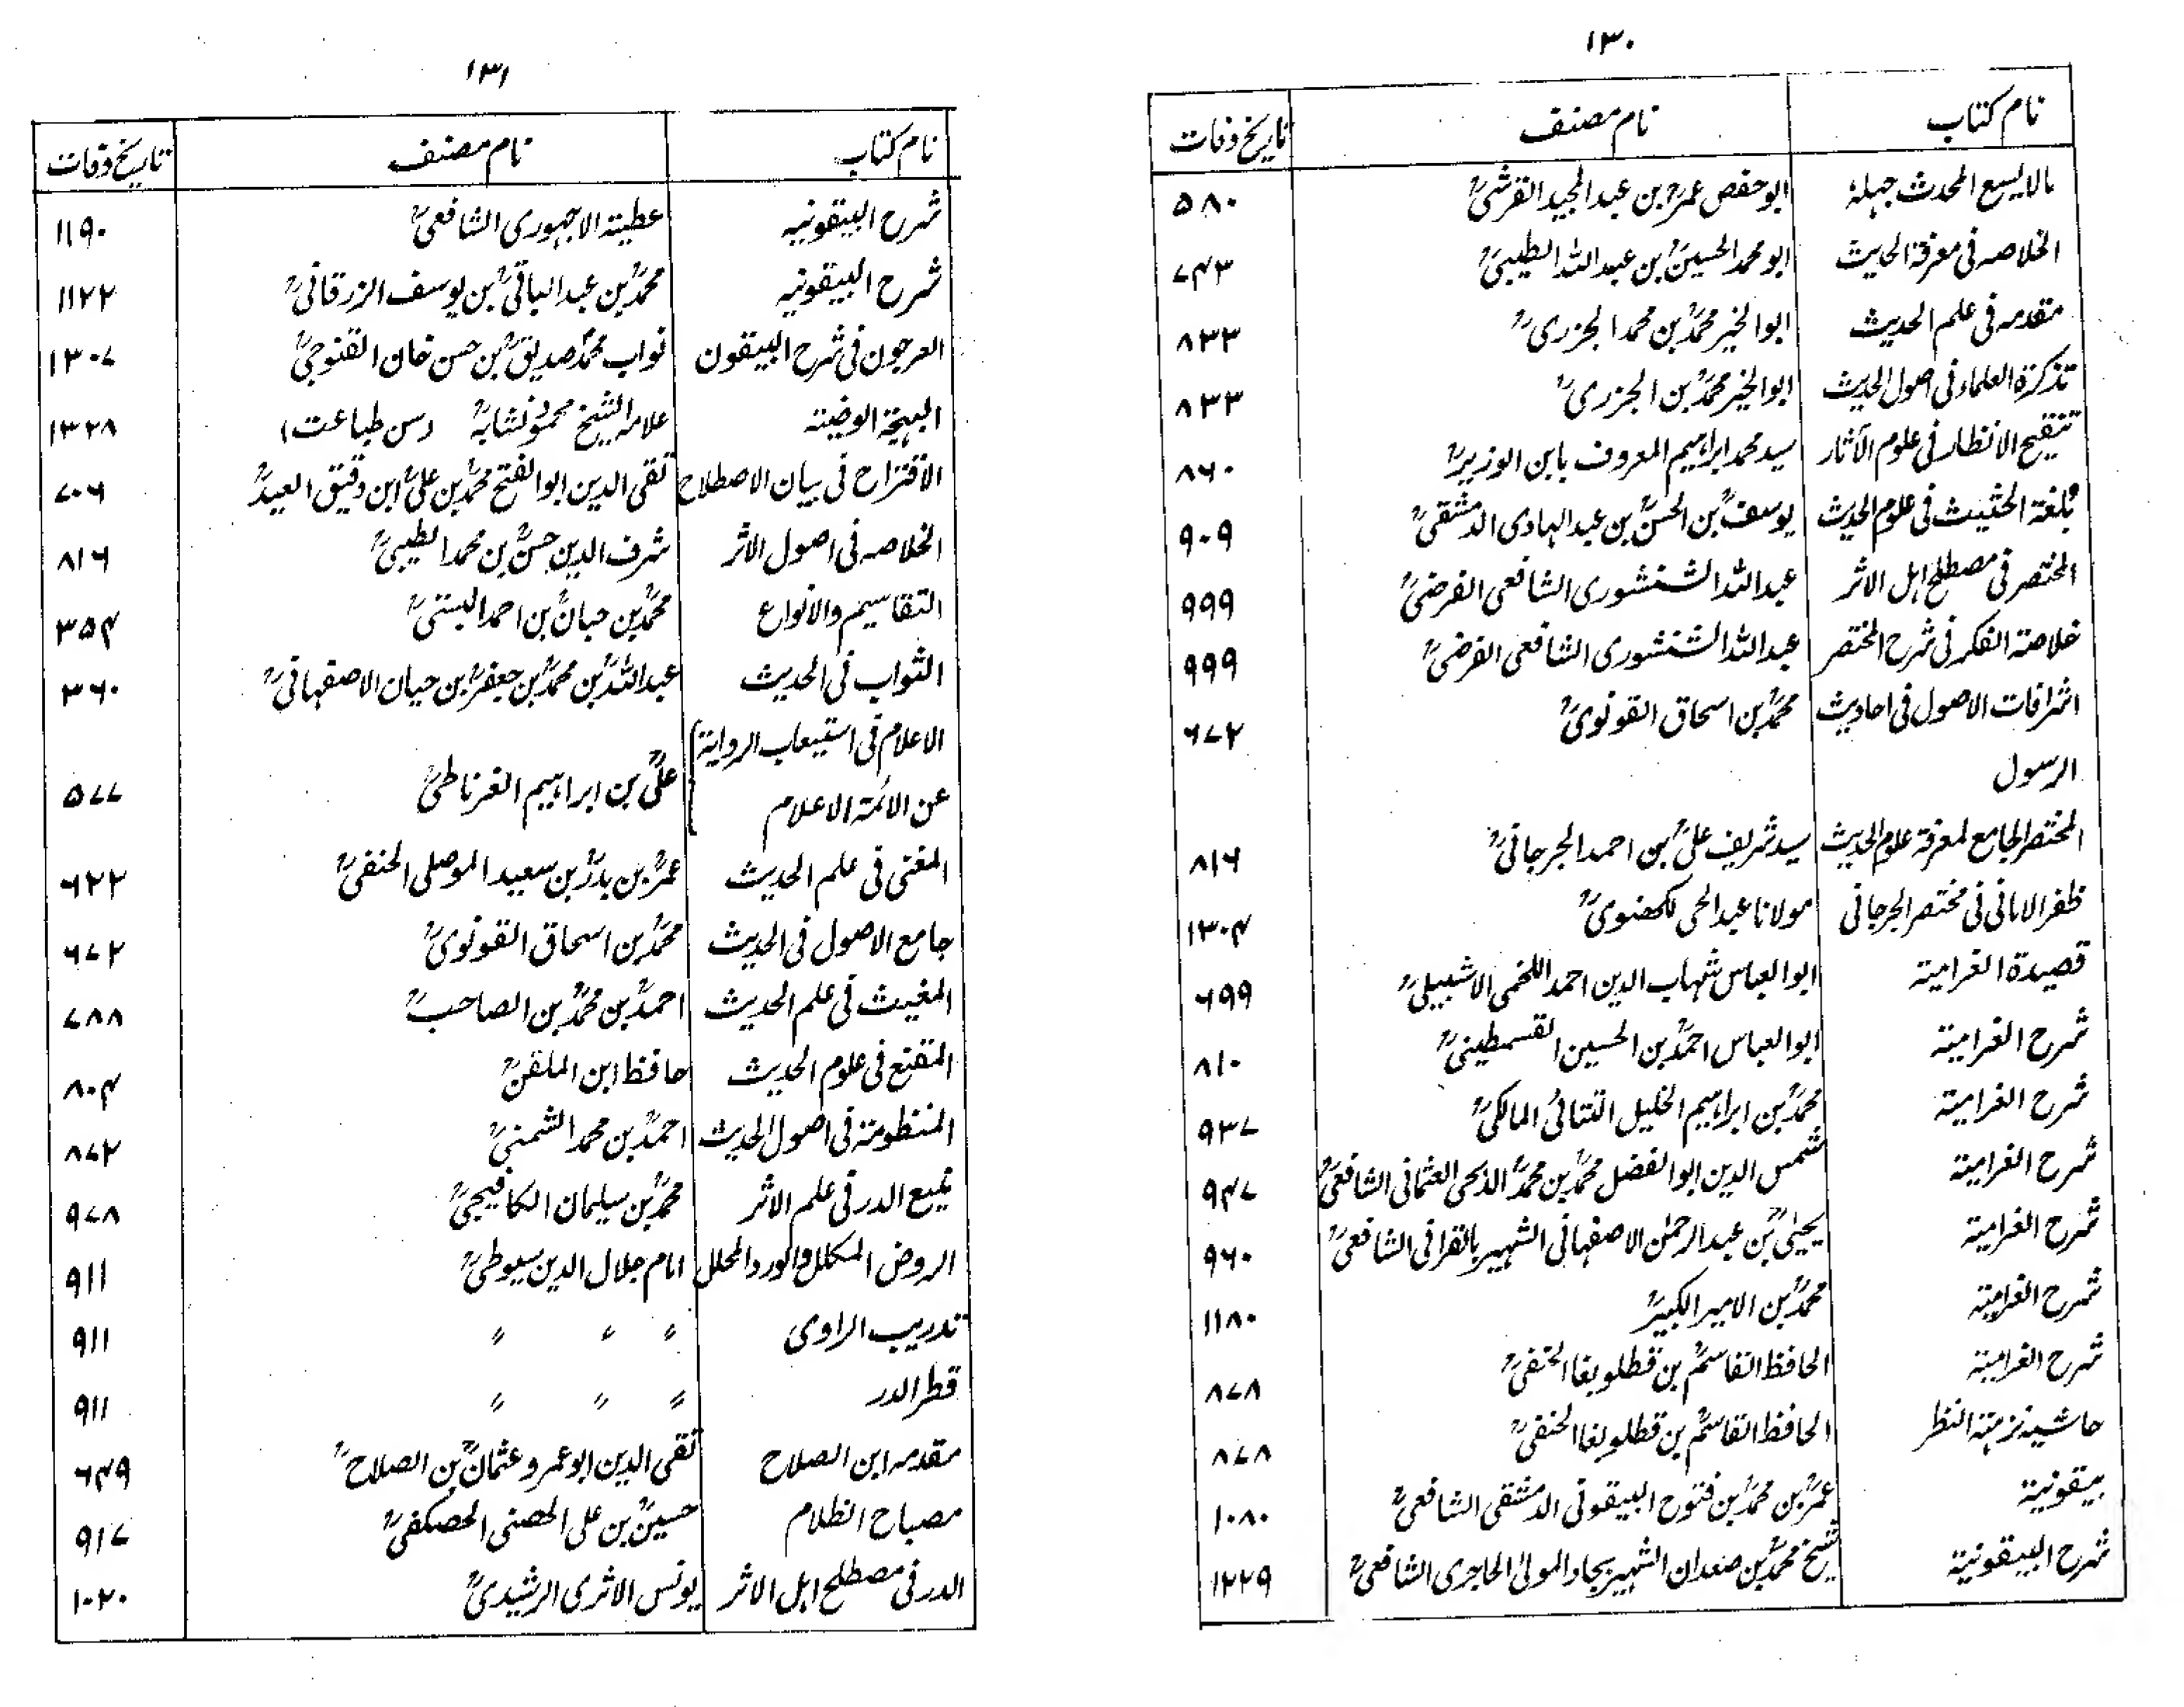 ۱۳۰
نام کتاب نام مصنف تاریخ وفات
مالایسع المحدث جہلہ ابو حفص عمرؒ بن عبد المجید القرشیؒ ۵۸۰
الخلاصہ فی معرفۃ الحدیث ابو محمد الحسینؒ بن عبد اللہ الطیبیؒ ۷۴۳
مقدمہ فی علم الحدیث ابو الخیر محمدؒ بن محمد الجزریؒ ۸۳۳
تذکرۃ العلماء فی اصول الحدیث ابو الخیر محمدؒ بن الجزریؒ ۸۳۳
تنقیح الانظار فی علوم الآثار سید محمد ابراہیم المعروف بابن الوزیرؒ ۸۶۰
بُلغۃ الحثیث فی علوم الحدیث یوسفؒ بن الحسنؒ بن عبد الہادی الدمشقیؒ ۹۰۹
المختصر فی مصطلح اہل الاثر عبد اللہ الشنشوری الشافعی الفرضیؒ ۹۹۹
خلاصۃ الفکر فی شرح المختصر عبد اللہ الشنشوری الشافعی الفرضیؒ ۹۹۹
اشراقات الاصول فی احادیث محمدؒ بن اسحاق القونویؒ ۶۷۲
الرسول
المختصر الجامع لمعرفۃ علوم الحدیث سید شریف علیؒ بن احمد الجرجانیؒ ۸۱۶
ظفر الامانی فی مختصر الجرجانی مولانا عبد الحی لکھنویؒ ۱۳۰۴
قصیدۃ الغرامیۃ ابو العباس شہاب الدین احمد اللخمی الاشبیلیؒ ۶۹۹
شرح الغرامیۃ ابو العباس احمدؒ بن الحسین القسمطینیؒ ۸۱۰
شرح الغرامیۃ محمدؒ بن ابراہیم الخلیل التتائی المالکیؒ ۹۳۷
شرح الغرامیۃ شمس الدین ابو الفضل محمدؒ بن محمدؒ الدلجی العثمانی الشافعیؒ ۹۴۷
شرح الغرامیۃ یحییٰؒ بن عبد الرحمٰن الاصفہانی الشہیر بالقرافی الشافعیؒ ۹۶۰
شرح الغرامیۃ محمدؒ بن الامیر الکبیرؒ ۱۱۸۰
شرح الغرامیۃ الحافظ القاسمؒ بن قطلوبغا الحنفیؒ ۸۷۸
حاشیہ نزہۃ النظر الحافظ القاسمؒ بن قطلوبغا الحنفیؒ ۸۷۸
بیقونیۃ عمرؒ بن محمدؒ بن فتوح البیقونی الدمشقی الشافعیؒ ۱۰۸۰
شرح البیقونیۃ شیخ محمدؒ بن صعدان الشہیر بجاد المولیٰ الحاجری الشافعیؒ ۱۲۲۹
۱۳۱
نام کتاب نام مصنف تاریخ وفات
شرح البیقونیہ عطیۃ الاجہوری الشافعیؒ ۱۱۹۰
شرح البیقونیہ محمدؒ بن عبد الباقیؒ بن یوسف الزرقانیؒ ۱۱۲۲
العرجون فی شرح البیقون نواب محمد صدیقؒ بن حسن خان القنوجیؒ ۱۳۰۷
البہجۃ الوضیۃ علامہ الشیخ محمودؒ نشابہ (سن طباعت) ۱۳۲۸
الاقتراح فی بیان الاصطلاح تقی الدین ابو الفتح محمدؒ بن علیؒ ابن دقیق العیدؒ ۷۰۶
الخلاصہ فی اصول الاثر شرف الدین حسنؒ بن محمد الطیبیؒ ۸۱۶
التقاسیم والانواع محمدؒ بن حبانؒ بن احمد البستیؒ ۳۵۴
الثواب فی الحدیث عبد اللہؒ بن محمدؒ بن جعفرؒ بن حیان الاصفہانیؒ ۳۶۰
الاعلام فی استیعاب الروایۃ
عن الائمۃ الاعلام علیؒ بن ابراہیم الغرناطیؒ ۵۷۷
المغنی فی علم الحدیث عمرؒ بن بدرؒ بن سعید الموصلی الحنفیؒ ۶۲۲
جامع الاصول فی الحدیث محمدؒ بن اسحاق القونویؒ ۶۷۲
المغیث فی علم الحدیث احمدؒ بن محمدؒ بن الصاحبؒ ۷۸۸
المقنع فی علوم الحدیث حافظ ابن الملقنؒ ۸۰۴
المنظومۃ فی اصول الحدیث احمدؒ بن محمد الشمنیؒ ۸۷۲
الدر فی علم الاثر محمدؒ بن سلیمان الکافیجیؒ ۹۷۸
الروض المکلل والورد المحلل امام جلال الدین سیوطیؒ ۹۱۱
تدریب الراوی 〃 〃 〃 ۹۱۱
قطر الدرر 〃 〃 〃 ۹۱۱
مقدمہ ابن الصلاح تقی الدین ابو عمرو عثمانؒ بن الصلاحؒ ۶۴۹
مصباح الظلام حسینؒ بن علی الحصنی الحصکفیؒ ۹۱۷
الدر فی مصطلح اہل الاثر یونس الاثری الرشیدیؒ ۱۰۲۰